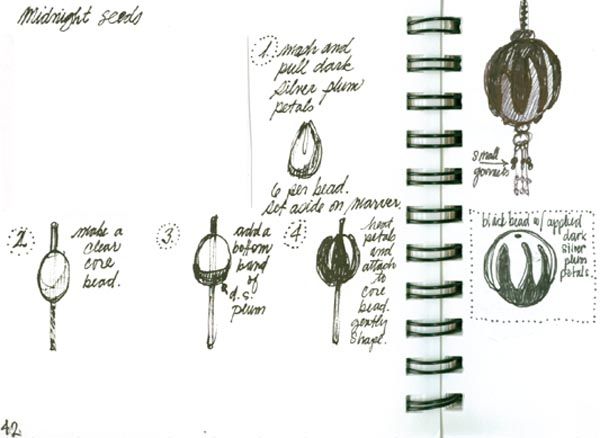 Midnight seeds
1. mash and
pull dark
silver plum
petals
6 per bead.
set aside on marver.
2. make a
clear
core
bead.
3. add a
bottom
band
of
d.s.
plum
4. heat
petals
and
attach
to
core
bead.
gently
shape.
42
small
garnets
black bead w/ applied
dark
silver
plum
petals.